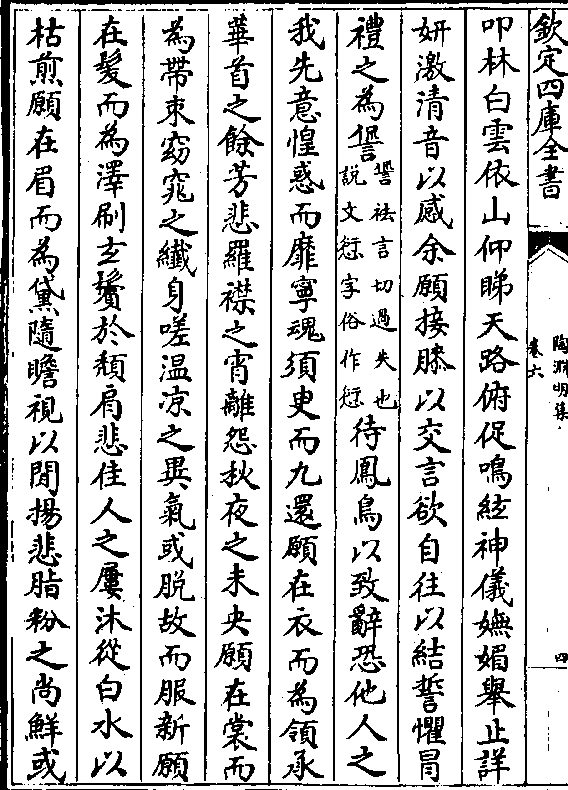 欽定四庫全書
陶淵明集
卷六
四
叩林白雲依山仰睇天路俯促鳴絃神儀嫵媚舉止詳
妍激清音以感余願接膝以交言欲自往以結誓懼冒
禮之為諐
諐袪言切過失也
說文愆字俗作愆
待鳳鳥以致辭恐他人之
我先意惶惑而靡寧魂須臾而九還願在衣而為領承
華首之餘芳悲羅襟之宵離怨秋夜之未央願在裳而
為帶束窈窕之纖身嗟温凉之異氣或脱故而服新願
在髮而為澤刷玄鬢於頽肩悲佳人之屢沐從白水以
枯煎願在眉而為黛隨瞻視以閒揚悲脂粉之尚鮮或